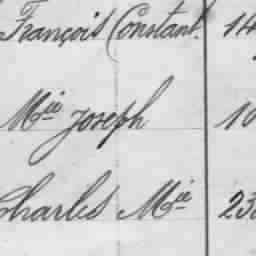 François Constant. 14
Mie Joseph 10
Charles Mie 23